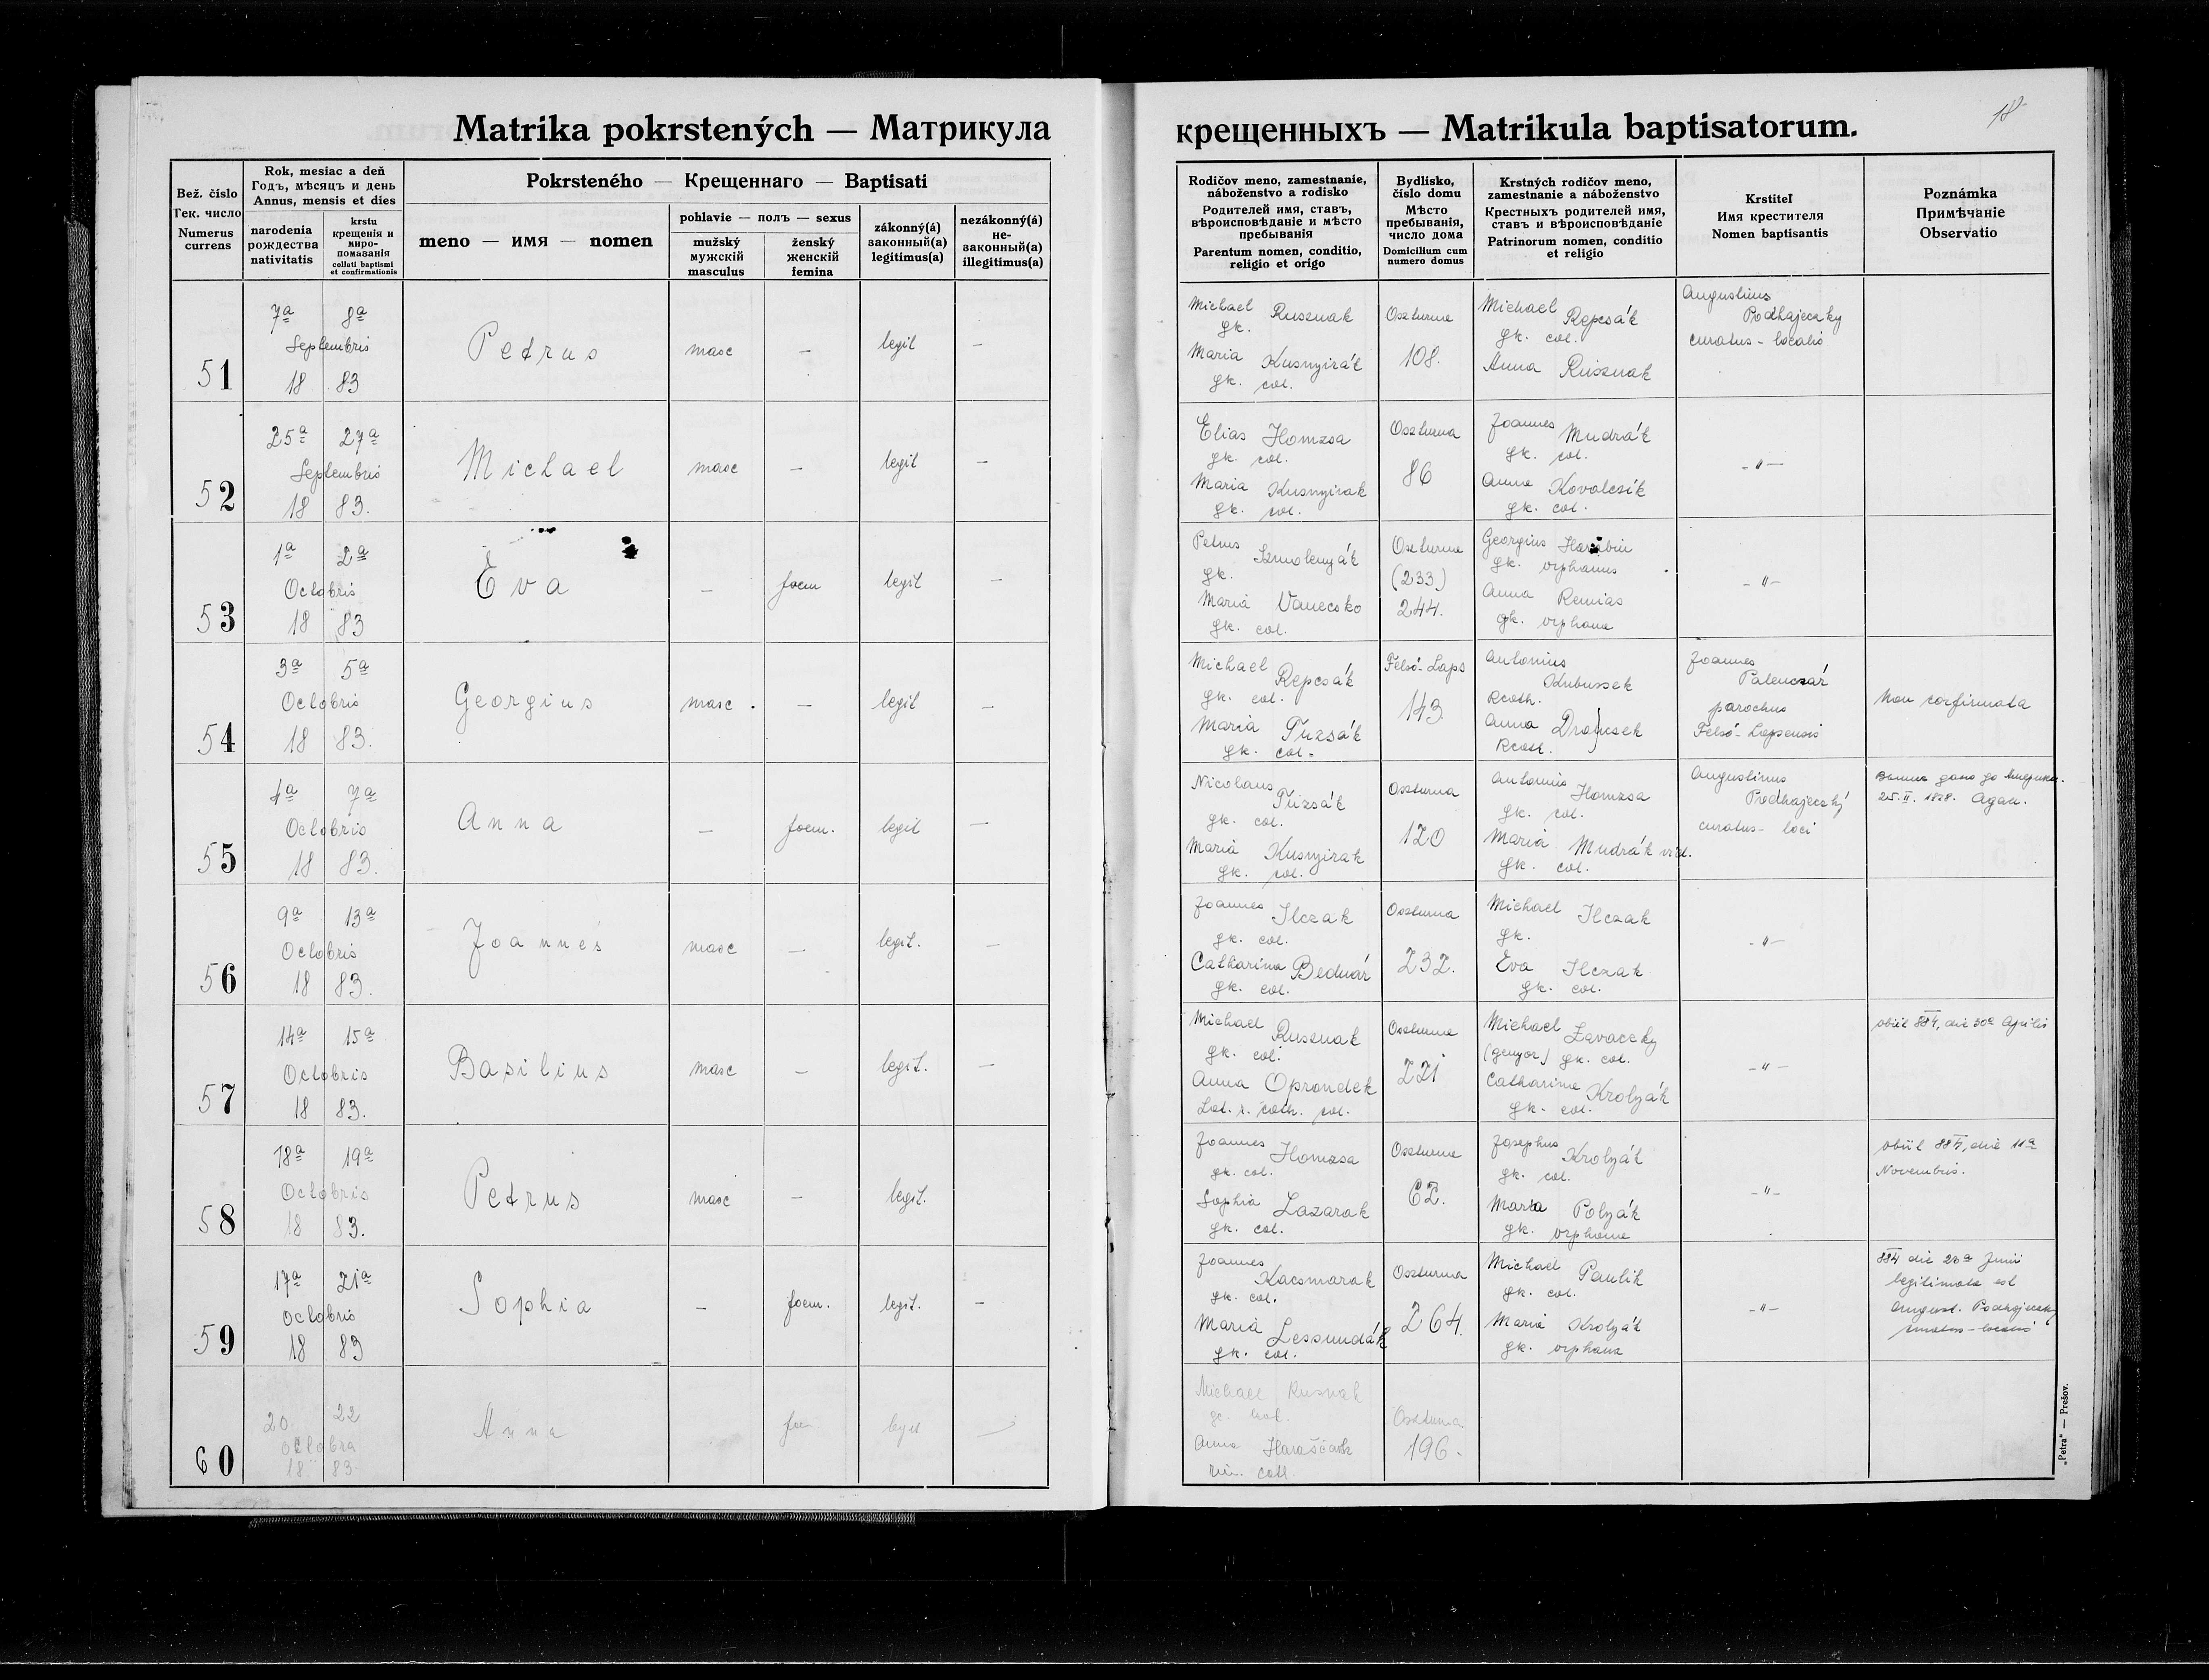 18
Matrika pokrstených — Матрикула
крещенныхъ — Matrikula baptisatorum.
Bež. číslo
Гек. число
Numerus
currens
Rok, mesiac a deň
Годъ, мѣсяцъ и день
Annus, mensis et dies
narodenia
рождества
nativitatis
krstu
крещенія и
миро-
помазанія
collati baptismi
et confirmationis
Pokrsteného — Крещеннаго — Baptisati
meno — имя — nomen
pohlavie — полъ — sexus
mužský
мужскій
masculus
ženský
женскій
femina
zákonný(á)
законный(а)
legitimus(a)
nezákonný(á)
не-
законный(а)
illegitimus(a)
Rodičov meno, zamestnanie,
náboženstvo a rodisko
Родителей имя, ставъ,
вѣроисповѣданіе и мѣсто
пребыванія
Parentum nomen, conditio,
religio et origo
Bydlisko,
číslo domu
Мѣсто
пребыванія,
число дома
Domicilium cum
numero domus
Krstných rodičov meno,
zamestnanie a náboženstvo
Крестныхъ родителей имя,
ставъ и вѣроисповѣданіе
Patrinorum nomen, conditio
et religio
Krstiteľ
Имя крестителя
Nomen baptisantis
Poznámka
Примѣчаніе
Observatio
51
7a 8a
Septembris
18 83
Petrus
masc
—
legit
—
Michael Rusznak
gk.
Maria Kusnyirák
gk. col.
Oszturna
108.
Michael Repcsák
gk. col.
Anna Rusznak
Augustinus
Podhajeczky
curatus-localis
52
25a 27a
Septembris
18 83.
Michael
masc
—
legit
—
Elias Homzsa
gk. col.
Maria Kusnyirak
gk. col.
Oszturna
86
Joannes Mudrák
gk. col.
Anna Kovalcsik
gk. col.
-"-
53
1a 2a
Octobris
18 83
Eva
—
foem
legit
—
Petrus Szmolenyák
gk.
Maria Vanecsko
gk. col.
Oszturna
(233)
244.
Georgius
gk. orphanus
Anna Remias
gk. orphana
-"-
54
3a 5a
Octobris
18 83.
Georgius
masc
—
legit
—
Michael Repcsák
gk. col.
Maria Tuzsák
gk. col.
Felsö-Laps
143
Antonius
Kubussek
Rcath.
Anna
Rcath.
Joannes
Palenczar
parochus
Felsö-Lapsensis
Non confirmata
55
4a 7a
Octobris
18 83.
Anna
—
foem.
legit
—
Nicolaus Tuzsák
gk. col.
Maria Kusnyirak
gk. col.
Oszturna
120
Antonius Homzsa
gk. col.
Maria Mudrák vid.
gk. col.
Augustinus
Podhajeczky
curatus-loci
56
9a 13a
Octobris
18 83.
Joannes
masc
—
legit.
—
Joannes Ilczak
gk. col.
Catharina Bednár
gk. col.
Oszturna
232.
Michael Ilczak
gk.
Eva Ilczak
gk. col.
-"-
57
14a 15a
Octobris
18 83.
Basilius
masc
—
legit.
—
Michael Rusznak
gk. col.
Anna Oprondek
Lat. r. cath. col.
Oszturna
221
Michael Zavaczky
gk. col.
Catharina Krolyák
gk. col.
-"-
obiit 884, die 30a Aprilis
58
18a 19a
Octobris
18 83.
Petrus
masc
—
legit.
Joannes Homzsa
gk. col.
Sophia Lazarak
gk. col.
Oszturna
62.
Josephus Krolyák
gk. col.
Maria Polyák
gk. orphana
-"-
obiit 884, die 11a
Novembris.
59
17a 21a
Octobris
18 83
Sophia
—
foem.
legit.
—
Joannes
Kacsmarak
gk. col.
Maria Lessundák
gk. col.
Oszturna
264.
Michael Paulik
gk. col.
Maria Krolyák
gk. orphana
-"-
884 die 28a Junii
legitimata est
August. Podhajeczky
curatus-localis
60
20 22
octobra
18 83.
Anna
foe
legit
Michael Rusnak
Anna
Oszturna
196.
„Petra" — Prešov.